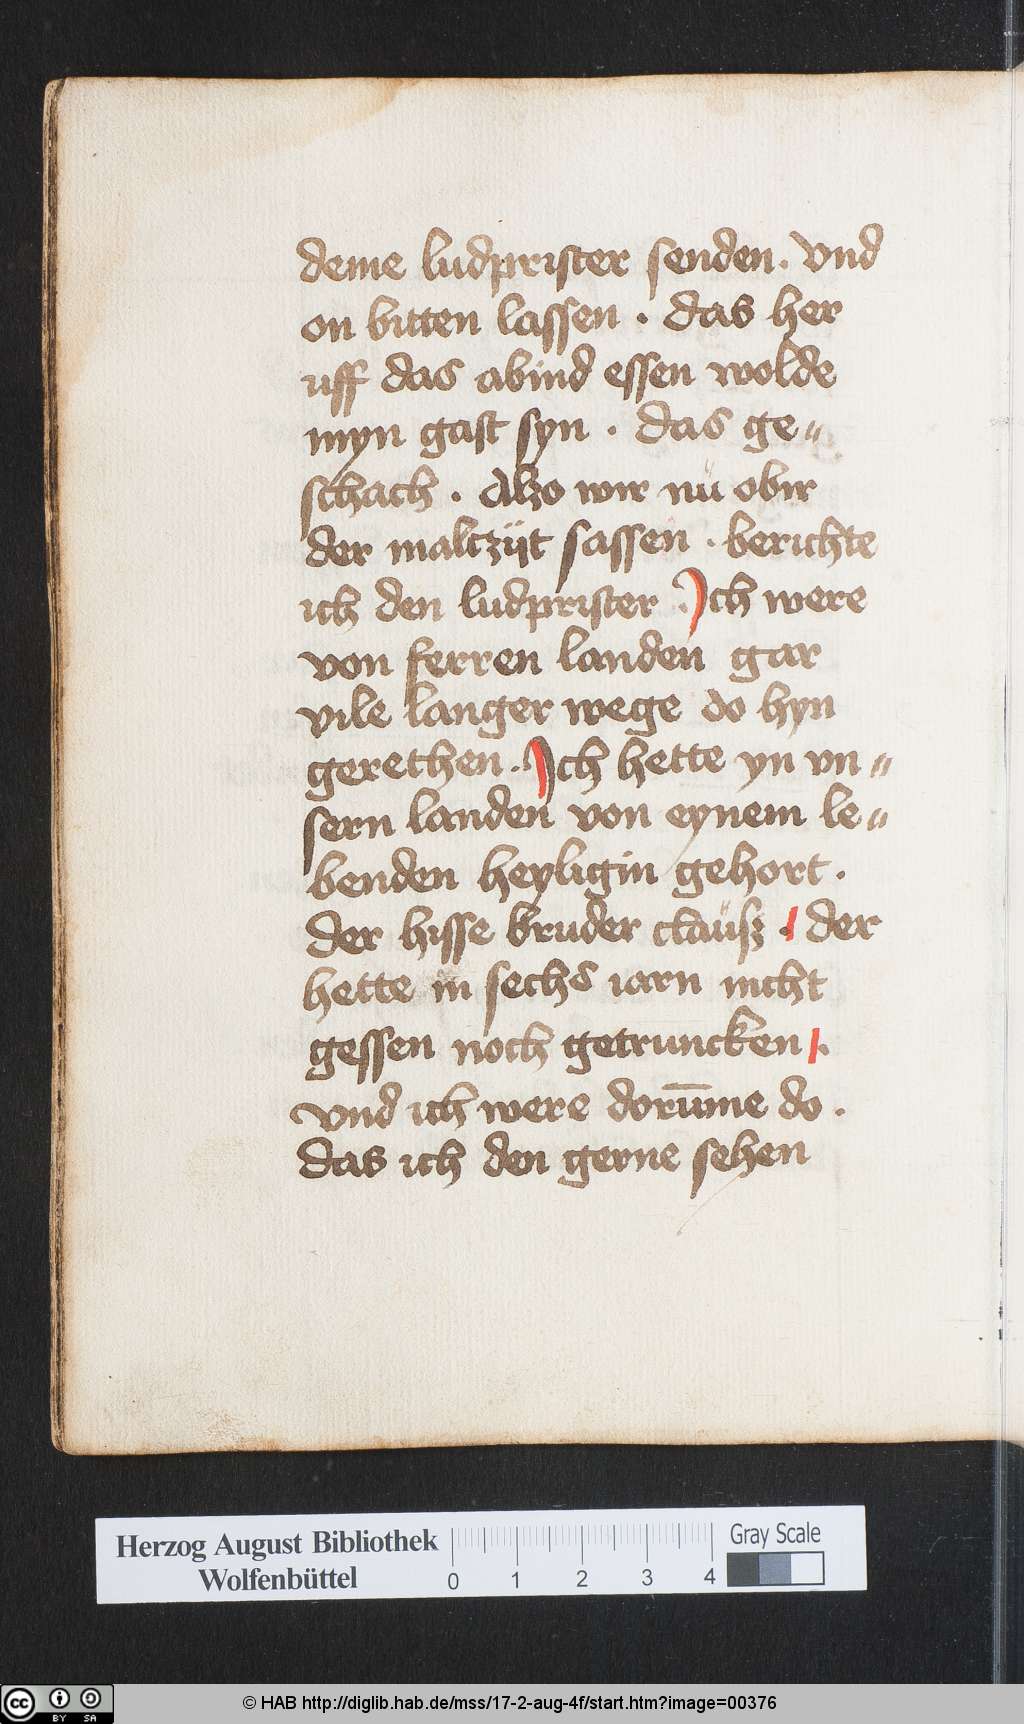 deme ludprister senden. vnd
on bitten lassen . das her
uff das abind essen wolde
myn gast syn . das ge〃
schach . Alzo wir nü obir
der maltzijt sassen . berichte
ich den ludprister . Ich were
von ferren landen gar
vile langer wege do hyn
gerethen . Ich hette yn vn〃
sern landen von eynem le〃
benden heyligin gehort .
der hisse bruder claüsz . der
hette in sechs iarn nicht
gessen noch getruncken .
vnd ich were dorūme do .
das ich den gerne sehen
Herzog August Bibliothek
Wolfenbüttel
0 1 2 3 4
Gray Scale
cc BY SA
© HAB http://diglib.hab.de/mss/17-2-aug-4f/start.htm?image=00376